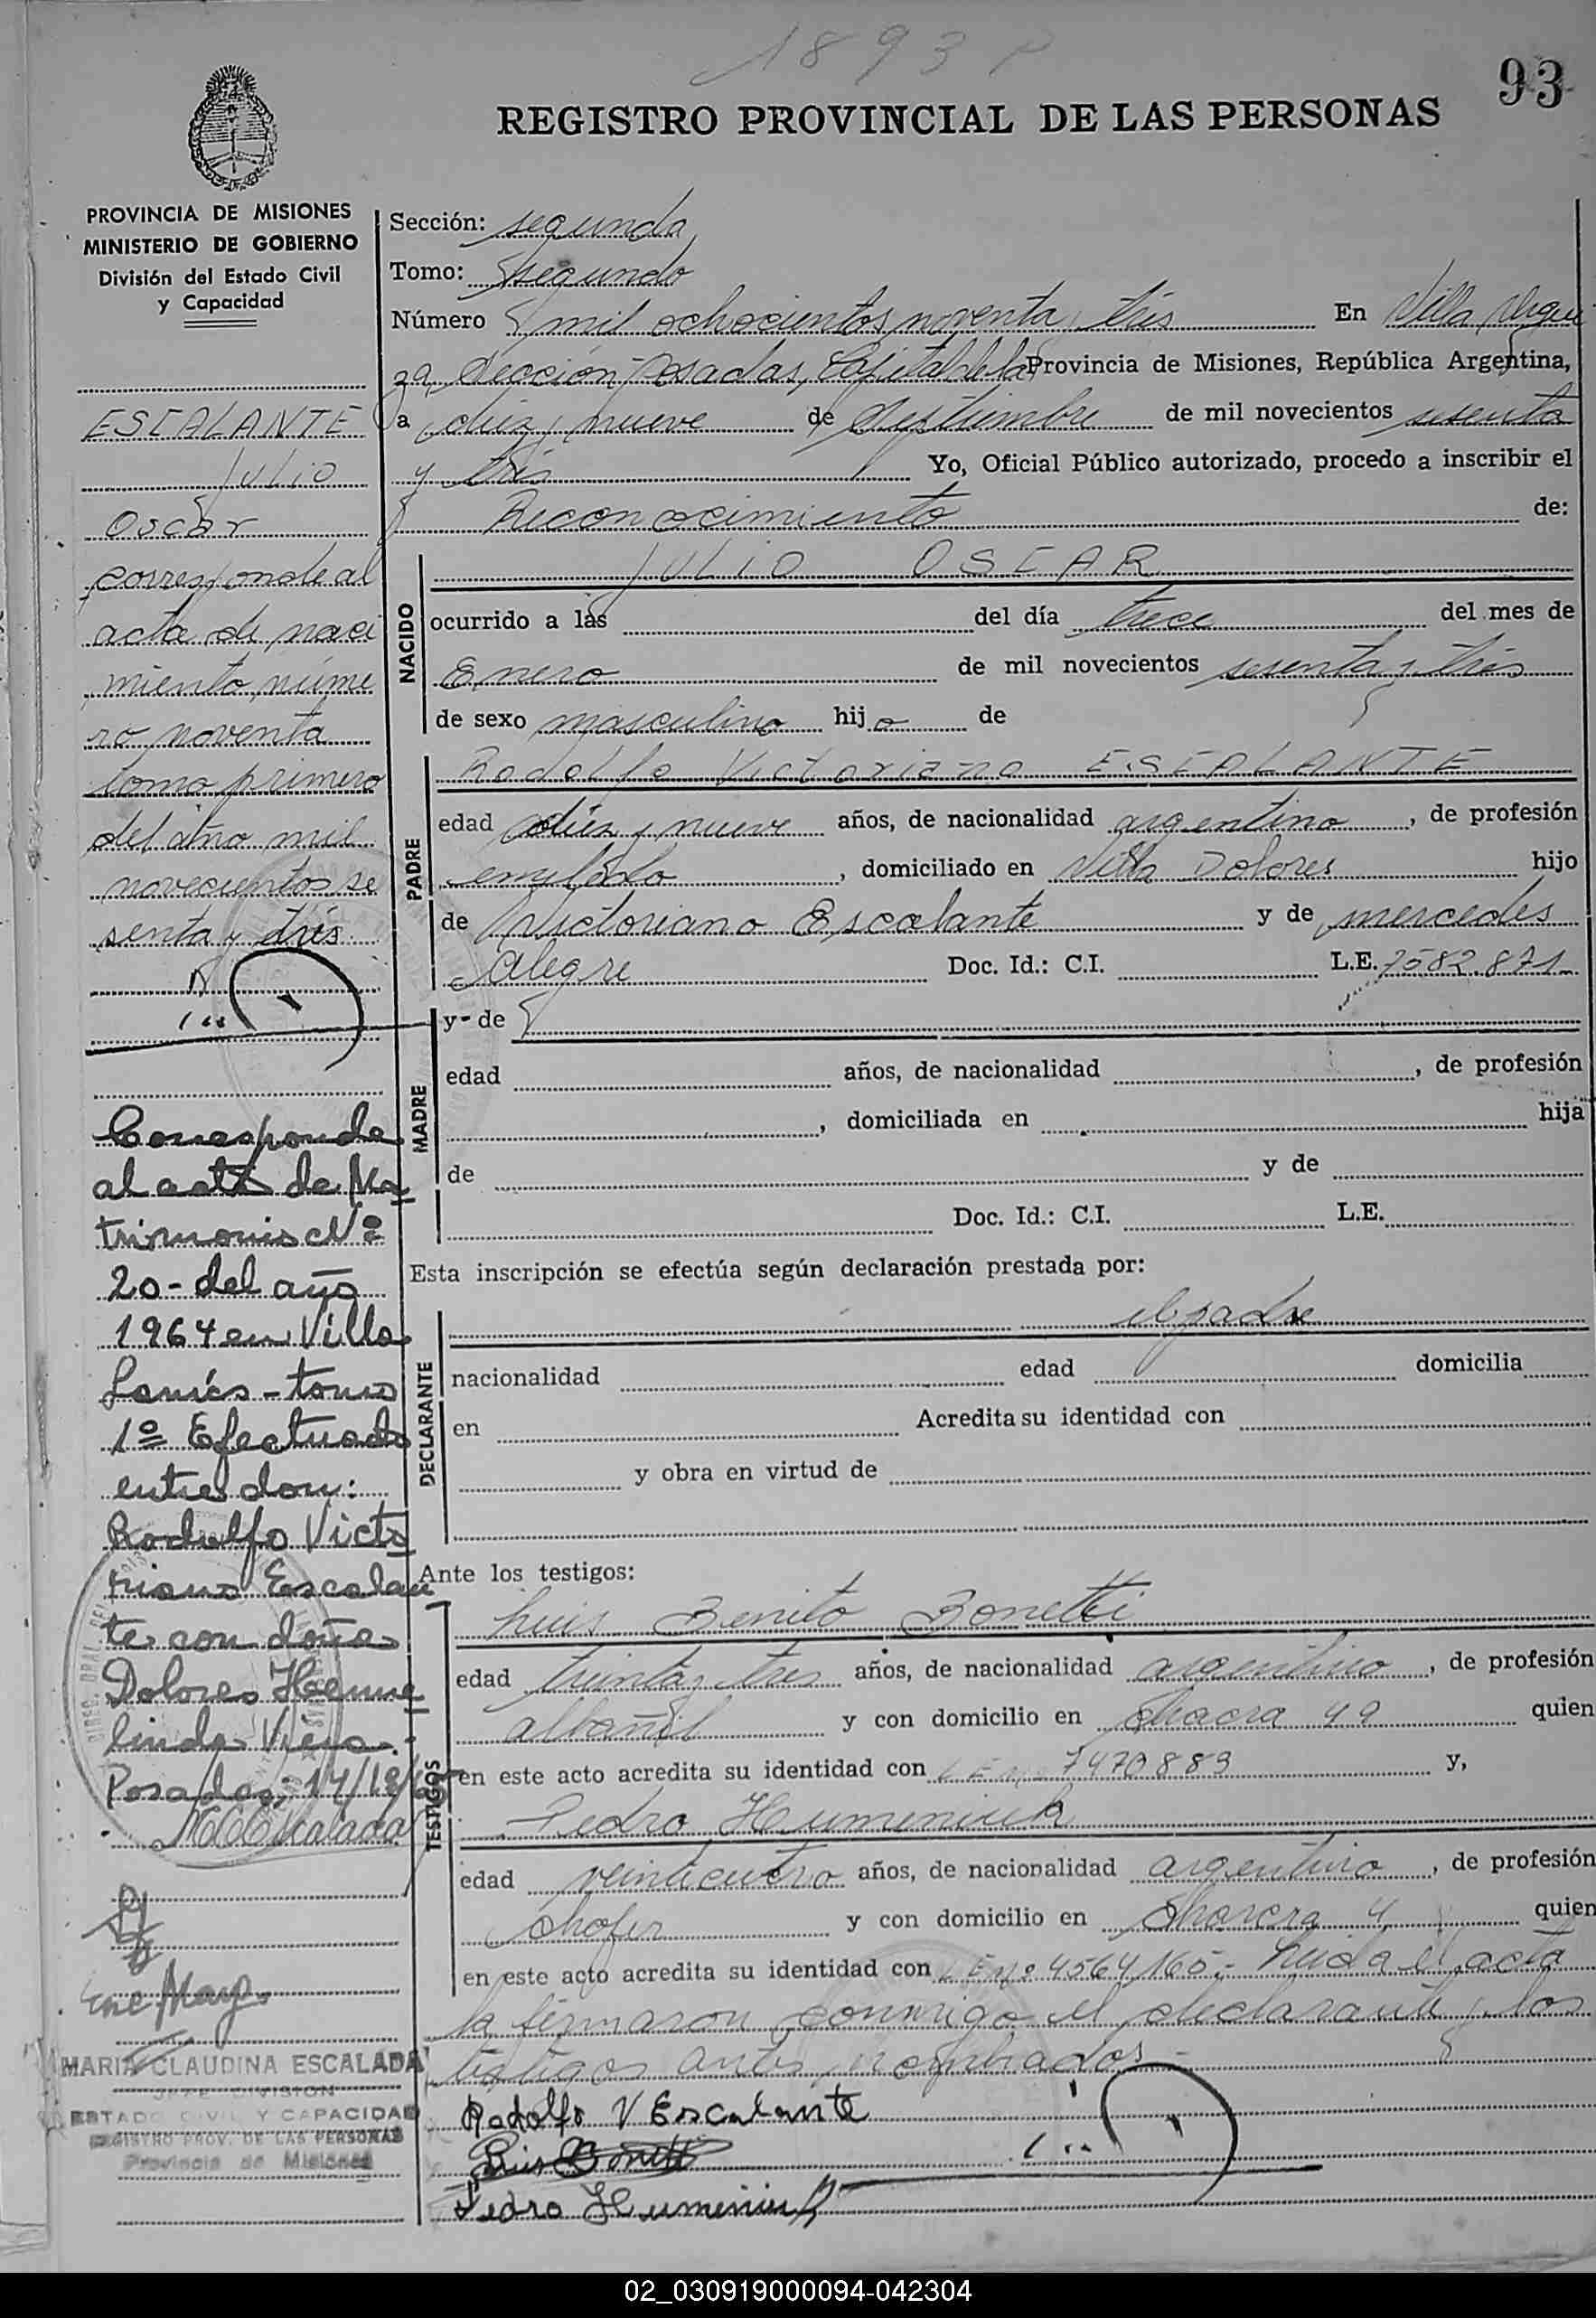 1893
93
REGISTRO PROVINCIAL DE LAS PERSONAS
PROVINCIA DE MISIONES
MINISTERIO DE GOBIERNO
División del Estado Civil
y Capacidad
ESCALANTE
JULIO
Oscar
corresponde al
acta de naci
miento, núme
ro noventa
tomo primero
del año mil
novecientos se
senta y tres
Corresponde
al acta de Ma
trimonio Nº
20 - del año
1964 en Villa
Lanús - tomo
1º Efectuado
entre don:
Rodolfo Victo
riano Escalan
te con doña
Dolores Herme
linda Viera.-
Posadas, 17/12/
MCEscalada
MARIA CLAUDINA ESCALADA
JEFE DIVISION
ESTADO CIVIL Y CAPACIDAD
REGISTRO PROV. DE LAS PERSONAS
Provincia de Misiones
Sección: segunda
Tomo: segundo
Número mil ochocientos noventa y tres En Villa Urqui
za, Sección Posadas, Capital de la Provincia de Misiones, República Argentina,
a diez y nueve de Septiembre de mil novecientos sesenta
y tres Yo, Oficial Público autorizado, procedo a inscribir el
Reconocimiento de:
NACIDO
JULIO OSCAR
ocurrido a las del día trece del mes de
Enero de mil novecientos sesenta y tres
de sexo masculino hijo de
PADRE
Rodolfo Victoriano ESCALANTE
edad diez y nueve años, de nacionalidad argentino, de profesión
empleado, domiciliado en Villa Dolores hijo
de Victoriano Escalante y de mercedes
Alegre Doc. Id.: C.I. L.E. 7582.871
MADRE
y de
edad años, de nacionalidad , de profesión
, domiciliada en hija
de y de
Doc. Id.: C.I. L.E.
Esta inscripción se efectúa según declaración prestada por:
DECLARANTE
el padre
nacionalidad edad domicilia
en Acredita su identidad con
y obra en virtud de
Ante los testigos:
TESTIGOS
Luis Benito Bonetti
edad treinta y tres años, de nacionalidad argentino, de profesión
albañil y con domicilio en Chacra 49 quien
en este acto acredita su identidad con L E Nº 7470883 y,
Pedro Humeniuk
edad veinticuatro años, de nacionalidad argentino, de profesión
chofer y con domicilio en Chacra 4 quien
en este acto acredita su identidad con L E Nº 4564165.- Leida el acta
la firmaron conmigo el declarante y los
testigos antes nombrados.-
Rodolfo V Escalante
Luis Bonetti
Pedro Humeniuk
02_030919000094-042304